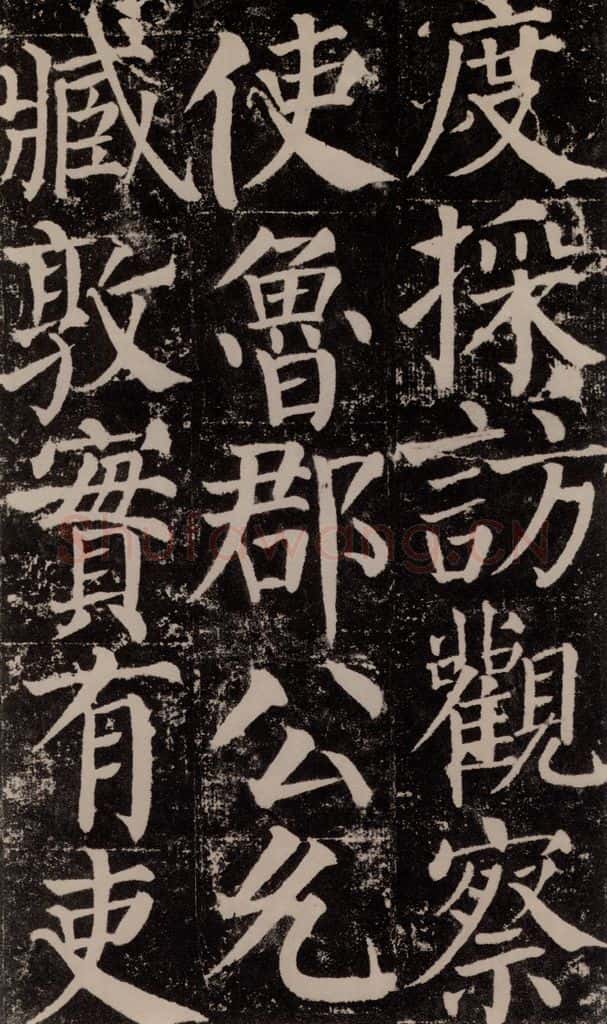 度採訪觀察
使魯郡公允
臧敦實有吏
Shufawang.CN